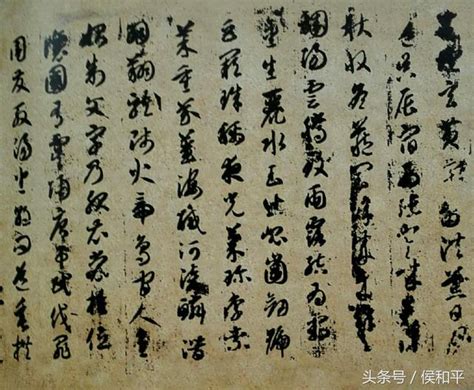 天地玄黃宇宙洪荒日月
盈昃辰宿列張寒來暑往
秋收冬藏閏餘成歲律呂
調陽雲騰致雨露結為霜
金生麗水玉出崑崗劍號
巨闕珠稱夜光菓珍李柰
菜重芥薑海鹹河淡鱗潛
羽翔龍師火帝鳥官人皇
始制文字乃服衣裳推位
讓國有虞陶唐弔民伐罪
周發殷湯坐朝問道垂拱
头条号 / 侯和平